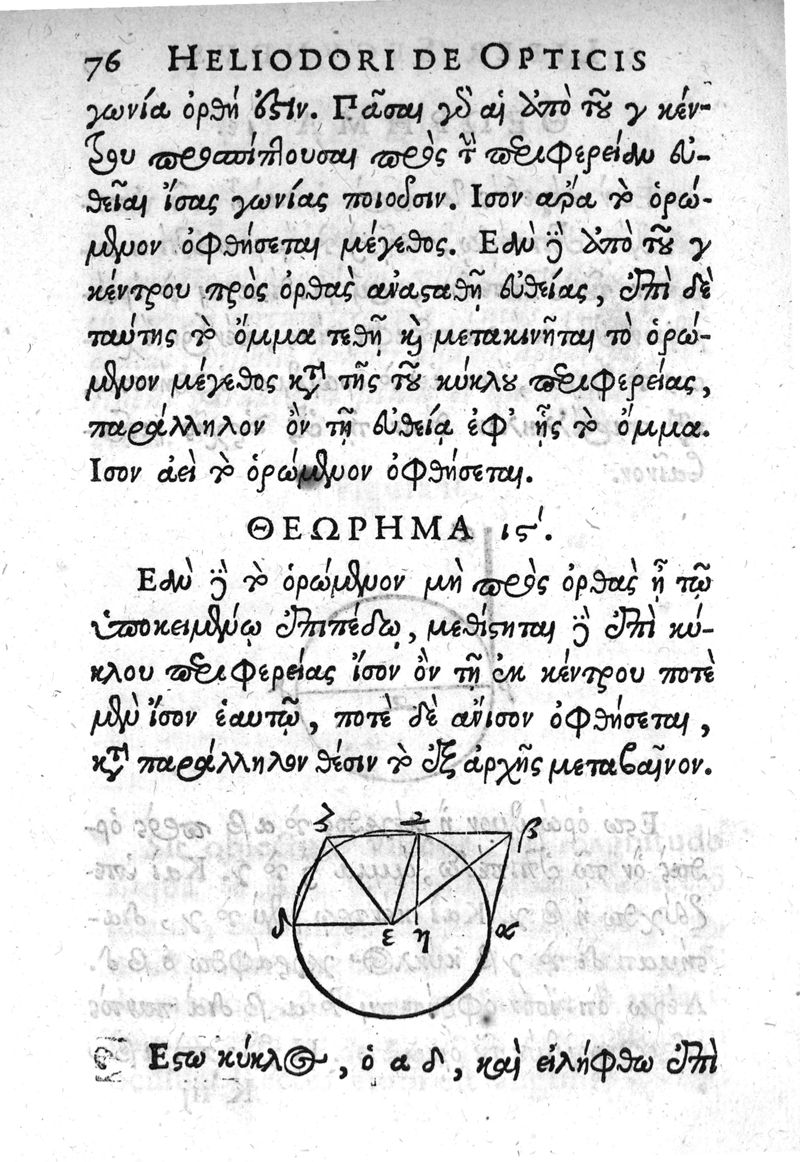 76 HELIODORI DE OPTICIS
γωνία ὀρθή ἐστιν. Πᾶσαι γὸ αἱ ἀπὸ τοῦ γ κέν-
τρου προσπίπλουσαι πρὸς τὴν περιφερείαν εὐ-
θεῖαι ἴσας γωνίας ποιοῦσιν. Ισον αρα τὸ ὁρώ-
μενον ὀφθήσεται μέγεθος. Εὰν δὲ ἀπὸ τοῦ γ
κέντρου πρὸς ὀρθὰς ἀναςαθῇ εὐθείας, ἐπὶ δὲ
ταύτης τὸ ὄμμα τεθῇ καὶ μετακινῆται τὸ ὁρώ-
μενον μέγεθος κατὰ τῆς τοῦ κύκλου περιφερείας,
παράλληλον ὂν τῇ εὐθείᾳ ἐφ᾽ ἧς τὸ ὄμμα.
Ισον ἀεὶ τὸ ὁρώμενον ὀφθήσεται.
ΘΕΩΡΗΜΑ ις΄.
Εὰν δὲ τὸ ὁρώμενον μὴ πρὸς ὀρθὰς ᾖ τῷ
ὑποκειμένῳ ἐπιπέδῳ, μεθίςηται δὲ ἐπὶ κύ-
κλου περιφερείας ἴσον ὂν τῇ ἐκ κέντρου ποτὲ
μὲν ἴσον ἑαυτῷ, ποτὲ δὲ ἄνισον ὀφθήσεται,
κατὰ παράλληλον θέσιν τὸ ἐξ ἀρχῆς μεταβαῖνον.
ζ γ β
δ ε η α
Εςω κύκλος, ὁ α δ, καὶ εἰλήφθω ἐπὶ